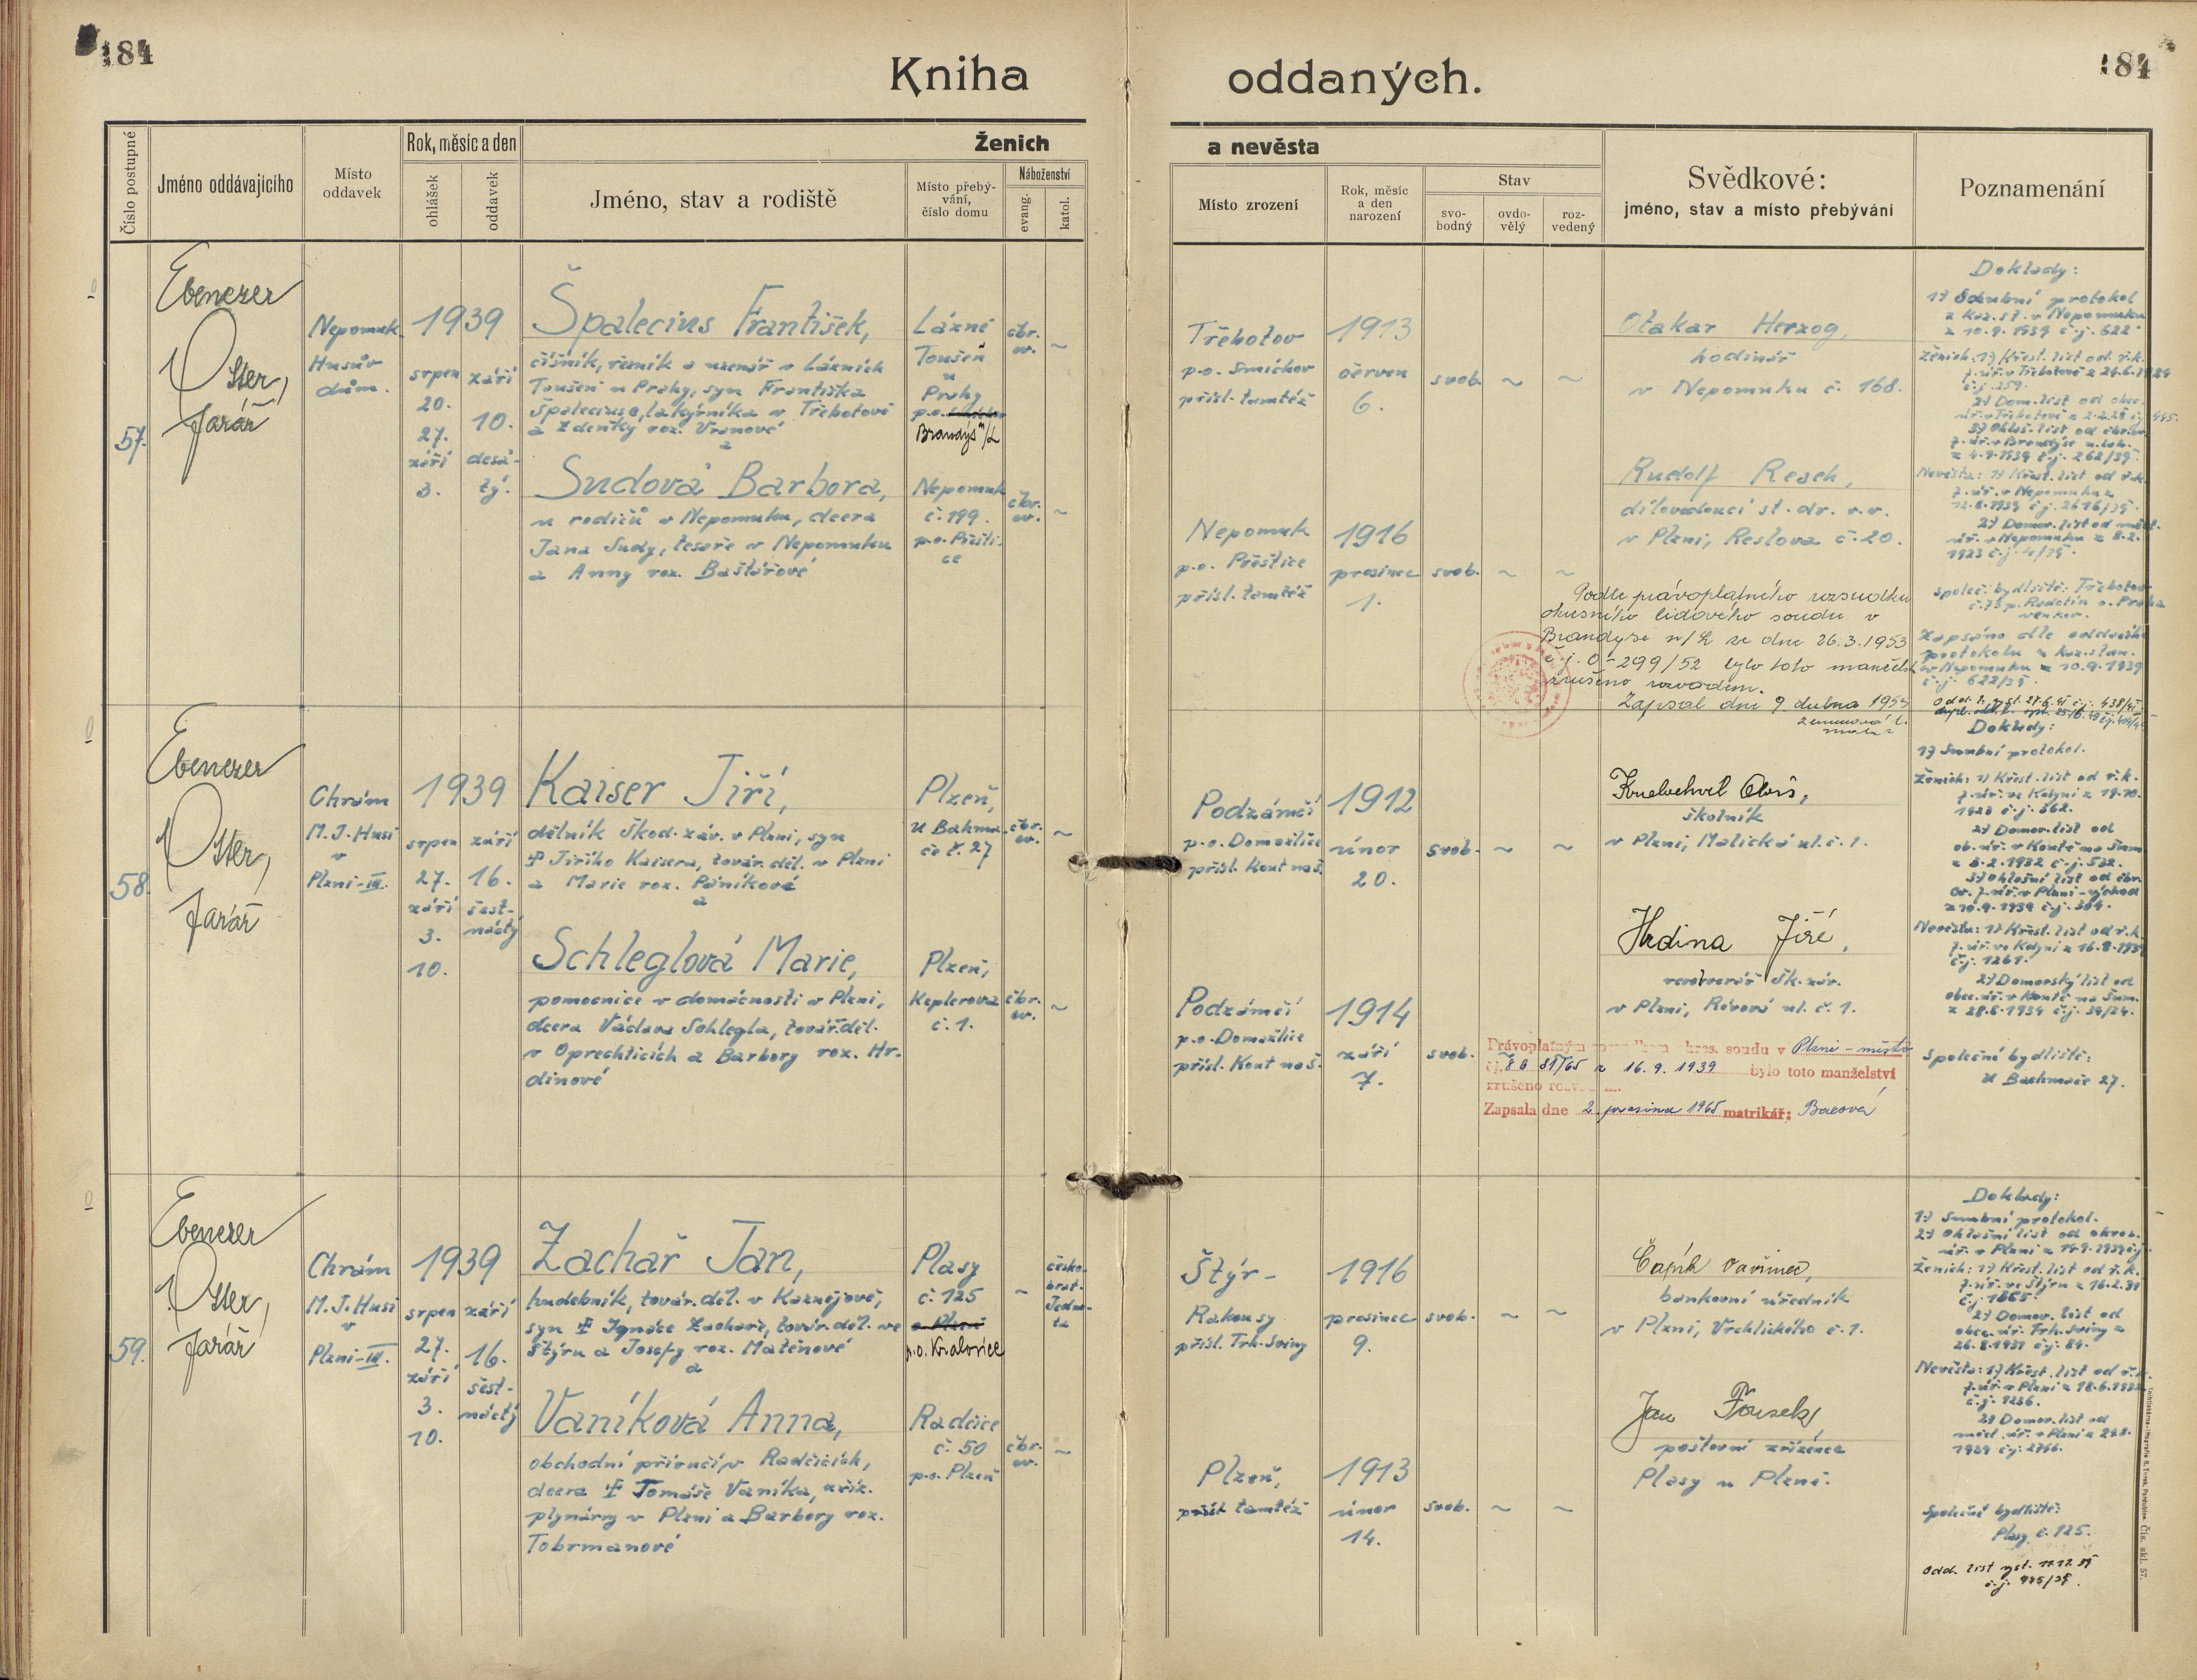 184
184
Kniha oddaných.
Číslo postupné
Jméno oddávajícího
Místo
oddavek
Rok, měsíc a den
ohlášek
oddavek
Ženich
a nevěsta
Jméno, stav a rodiště
Místo přebý-
vání,
číslo domu
Náboženství
evang.
katol.
Místo zrození
Rok, měsíc
a den
narození
Stav
svo-
bodný
ovdo-
vělý
roz-
vedený
Svědkové:
jméno, stav a místo přebývání
Poznamenání
57.
Ebenezer
Otter,
farář
Nepomuk
Husův
dům.
1939
srpen
20.
27.
září
3.
září
10.
desá-
tý.
Špalecius František,
číšník, řezník a uzenář v Lázních
Toušeni u Prahy, syn Františka
Špaleciuse, lakýrníka v Třebotově
a Zdeňky roz. Vranové
a
Sudová Barbora,
u rodičů v Nepomuku, dcera
Jana Sudy, tesaře v Nepomuku
a Anny roz. Baštářové
Lázně
Toušeň
u
Prahy
p.o.
Brandýs n/L
Nepomuk
č. 199.
p.o. Přešti-
ce
čbr.
ev.
~
čbr.
ev.
~
Třebotov
p.o. Smíchov
přísl. tamtéž
1913
červen
6.
svob. ~ ~
Nepomuk
p.o. Přeštice
přísl. tamtéž
1916
prosinec
1.
svob. ~ ~
Otakar Herzog,
hodinář
v Nepomuku č. 168.
Rudolf Resch,
dílovedoucí st. dr. v.v.
v Plzni, Reslova č. 20.
Podle právoplatného rozsudku
okresního lidového soudu v
Brandýse n/L ze dne 26.3.1953
č.j. 0-299/52 bylo toto manželst.
zrušeno rozvodem.
Zapsal dne 9. dubna 1953
Doklady:
1) Snubní protokol
z kaz. st. v Nepomuku
z 10.9.1939 č.j. 622
Ženich: 1) Křest. list od ř.k.
f. úř. v Třebotově z 24.6.1924
č.j. 259.
2) Dom. list od obec.
úř. v Třebotově z 2.2.28 čj. 445.
3) Ohláš. list od čbr. ev.
f. úř. v Brandýse n. Lab.
z 4.9.1939 č.j. 262/39.
Nevěsta: 1) Křest. list od ř.k.
f. úř. v Nepomuku z
12.8.1939 č.j. 2616/39.
2) Domov. list od měst.
úř. v Nepomuku z 8.2.
1923 č.j. 4/39.
Společ. bydliště: Třebotov
č. 73 p. Radotín o. Praha
venkov.
Zapsáno dle oddacího
protokolu z kaz. stan.
v Nepomuku z 10.9.1939
č.j. 622/39.
58.
Ebenezer
Otter,
farář
Chrám
M. J. Husi
v
Plzni-III.
1939
srpen
27.
září
3.
10.
září
16.
šest-
náctý
Kaiser Jiří,
dělník Škod. záv. v Plzni, syn
† Jiřího Kaisera, továr. děl. v Plzni
a Marie roz. Páníkové
a
Schleglová Marie,
pomocnice v domácnosti v Plzni,
dcera Václava Schlegla, továř. děl.
v Oprechticích a Barbory roz. Hr-
dinové
Plzeň,
U Bahma-
če č. 27
Plzeň,
Keplerova
č. 1.
čbr.
ev.
~
čbr.
ev.
~
Podzámčí
p.o. Domažlice
přísl. Kout na š.
1912
únor
20.
svob. ~ ~
Podzámčí
p.o. Domažlice
přísl. Kout na š.
1914
září
7.
svob.
školník
v Plzni, Malická ul. č. 1.
Hrdina Jiří,
revolverář šk. záv.
v Plzni, Révová ul. č. 1.
Právoplatným rozsudkem okres. soudu v Plzni - město
16.9.1939 bylo toto manželství
zrušeno rozvodem.
Zapsala dne 2. prosince 1965 matrikář: Bacová
Doklady:
1) Snubní protokol.
Ženich: 1) Křest. list od ř.k.
f. úř. ve Kdyni z 19.10.
1928 č.j. 862.
2) Domov. list od
ob. úř. v Koutě na Šum.
z 8.2.1932 č.j. 532.
3) Ohlašní list od čbr.
ev. f. úř. v Plzni-východ
z 10.9.1939 č.j. 304.
Nevěsta: 1) Křest. list od ř.k.
f. úř. ve Kdyni z 16.8.1939
č.j. 1261.
2) Domovský list od
obec. úř. v Koutě na Šum.
z 28.8.1934 č.j. 34/24.
Společné bydliště:
U Bachmače 27.
59.
Ebenezer
Otter,
farář
Chrám
M. J. Husi
v
Plzni-III.
1939
srpen
27.
září
3.
10.
září
16.
šest-
náctý
Zachař Jan,
hudebník, továr. děl. v Kaznějově,
syn † Ignáce Zachaře, továr. děl. ve
Štýru a Josefy roz. Matěnové
a
Vaníková Anna,
obchodní příručí v Radčicích,
dcera † Tomáše Vaníka, zříz.
plynárny v Plzni a Barbory roz.
Tobrmanové
Plasy
č. 125
o. Plzeň
p.o. Kralovice
Radčice
č. 50
p.o. Plzeň
~
česko-
brat.
Jedno-
ta
čbr.
ev.
~
Štýr-
Rakousy
přísl. Trh. Sviny
1916
prosinec
9.
svob. ~ ~
Plzeň,
přísl. tamtéž
1913
únor
14.
svob. ~ ~
bankovní úředník
v Plzni, Vrchlického č. 1.
Jan Fousek,
poštovní zřízenec
Plasy u Plzně.
Doklady:
1) Snubní protokol.
2) Ohlašní list od okres.
úř. v Plzni z 14.9.1939 čj.
Ženich: 1) Křest. list od ř.k.
f. úř. ve Štýru z 16.2.39
č.j. 1665.
2) Domov. list od
obec. úř. Trh. Sviny z
26.8.1937 č.j. 84.
Nevěsta: 1) Křest. list od ř.k.
č.j. 1236.
2) Domov. list od
měst. úř. v Plzni z 29.8.
1939 č.j. 2766.
Společné bydliště:
Plasy č. 125.
Odd. list vyst. 11.12.39
č.j. 445/39.
Čís. skl. 57.